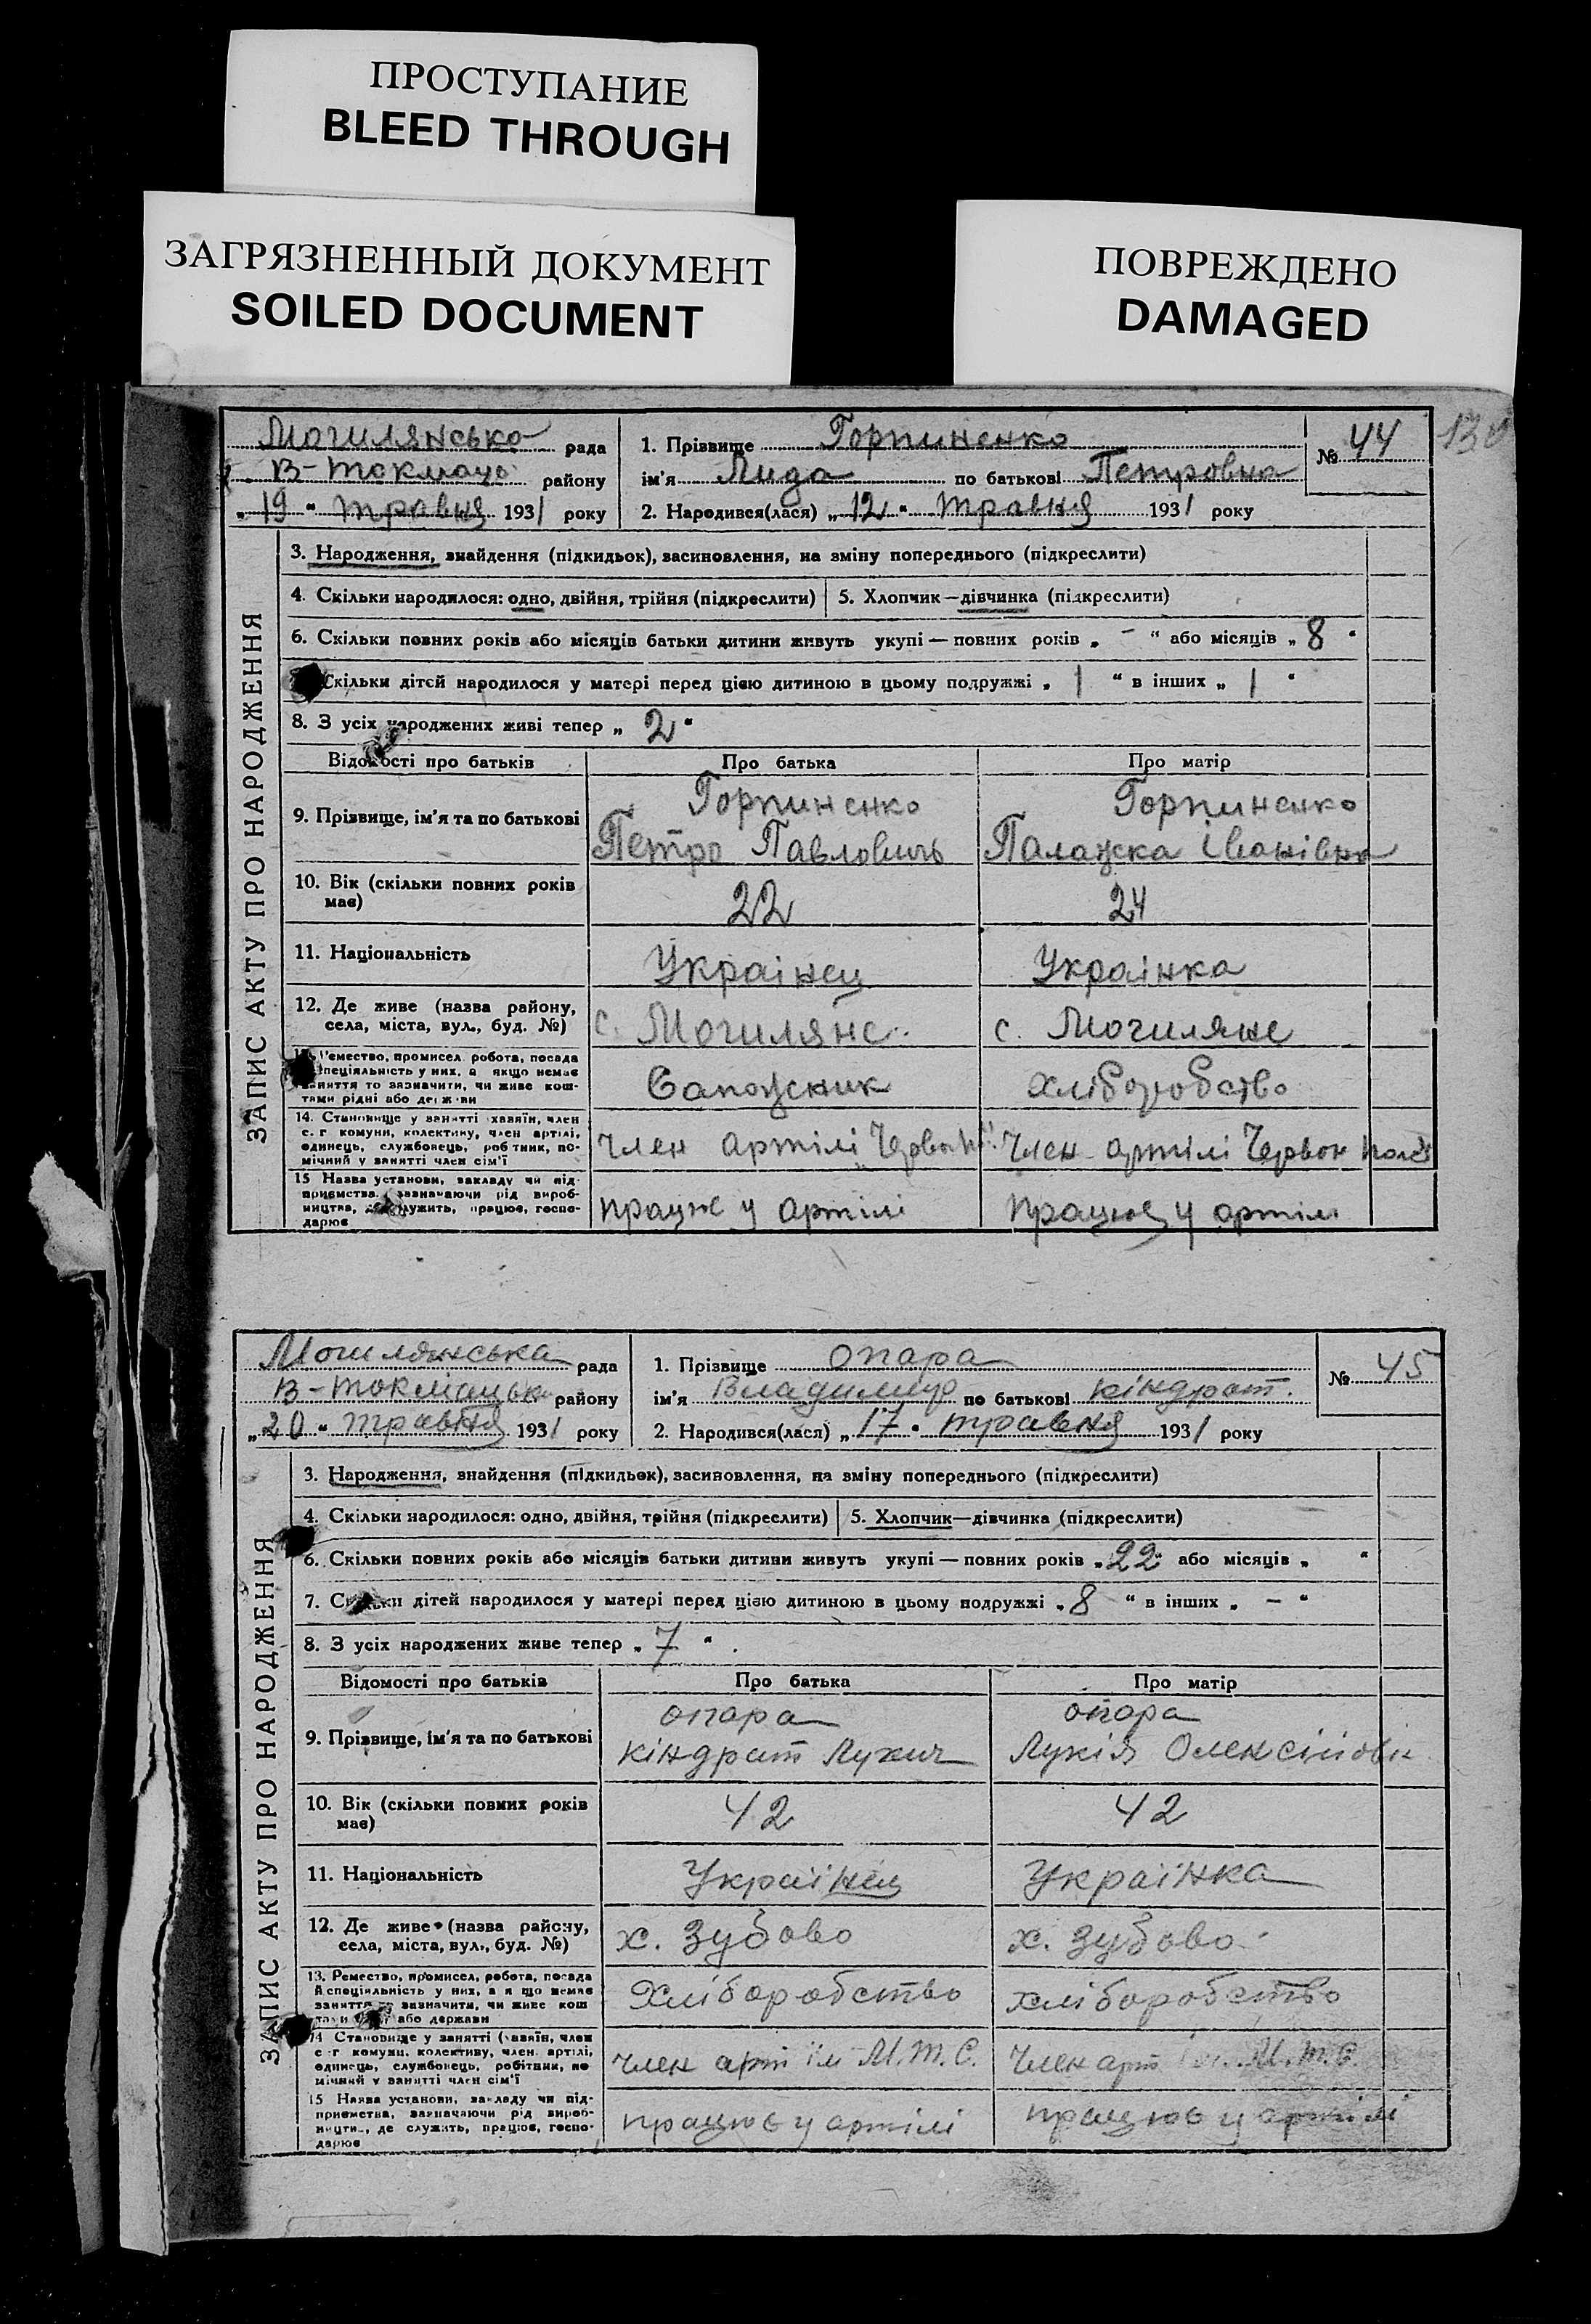 ПРОСТУПАНИЕ
BLEED THROUGH
ЗАГРЯЗНЕННЫЙ ДОКУМЕНТ
SOILED DOCUMENT
ПОВРЕЖДЕНО
DAMAGED
130
Могилянсько рада
В-Токмацо району
„19“ травня 1931 року
1. Прізвище Горпиненко
№ 44
ім'я Лида по батькові Петровна
2. Народився(лася) „12“ травня 1931 року
ЗАПИС АКТУ ПРО НАРОДЖЕННЯ
3. Народження, знайдення (підкидьок), засиновлення, на зміну попереднього (підкреслити)
4. Скільки народилося: одно, двійня, трійня (підкреслити)
5. Хлопчик—дівчинка (підкреслити)
6. Скільки повних років або місяців батьки дитини живуть укупі — повних років „ - “ або місяців „ 8 “
Скільки дітей народилося у матері перед цією дитиною в цьому подружжі „ 1 “ в інших „ 1 “
8. З усіх народжених живі тепер „ 2 “
Відомості про батьків
Про батька
Про матір
9. Прізвище, ім'я та по батькові
Горпиненко
Петро Павлович
Горпиненко
Палажка Іванівна
10. Вік (скільки повних років має)
22
24
11. Національність
Українец
Українка
12. Де живе (назва району,
села, міста, вул., буд. №)
с. Могиляне
с. Могиляне
Ремество, промисел робота, посада
спеціяльність у них, а якщо немає
заняття то зазначити, чи живе кош-
тами рідні або держави
Сапожник
хліборобство
14. Становище у занятті хазяїн, член
с.г комуни, колективу, член артілі,
одинець, службовець, робітник, по-
мічний у занятті член сім'ї
Член артілі Червон
Член артілі Червон
15 Назва установи, закладу чи під-
приємства, зазначаючи рід вироб-
ництва, де служить, працює, госпо-
дарює
працює у артілі
працює у артілі
Могилянська рада
В-Токмацьк району
„20“ травня 1931 року
1. Прізвище опара
№ 45
ім'я Владимир по батькові кіндрат.
2. Народився(лася) „17“ травня 1931 року
ЗАПИС АКТУ ПРО НАРОДЖЕННЯ
3. Народження, знайдення (підкидьок), засиновлення, на зміну попереднього (підкреслити)
4. Скільки народилося: одно, двійня, трійня (підкреслити)
5. Хлопчик—дівчинка (підкреслити)
6. Скільки повних років або місяців батьки дитини живуть укупі — повних років „22“ або місяців „ “
7. Скільки дітей народилося у матері перед цією дитиною в цьому подружжі „8 “ в інших „ - “
8. З усіх народжених живе тепер „ 7 “
Відомості про батьків
Про батька
Про матір
9. Прізвище, ім'я та по батькові
опара
кіндрат Лукич
опара
Лукія Олексіївн
10. Вік (скільки повних років
має)
42
42
11. Національність
Українец
Українка
12. Де живе (назва району,
села, міста, вул., буд. №)
х. Зубово
х. Зубово
13. Ремество, промисел, робота, посада
й спеціяльність у них, а я що немає
заняття зазначити, чи живе кош
або держави
Хліборобство
хліборобство
14 Становище у занятті (хазяїн, член
с г комуни, колективу, член артілі,
одинець, службовець, робітник, по
мічний у занятті член сім'ї
член арт ім М.Т.С.
Член арт ім. М.Т.С.
15 Назва установи, закладу чи під-
приємства, зазначаючи рід вироб-
ництв., де служить, працює, госпо-
дарює
працює у артілі
працює у артілі